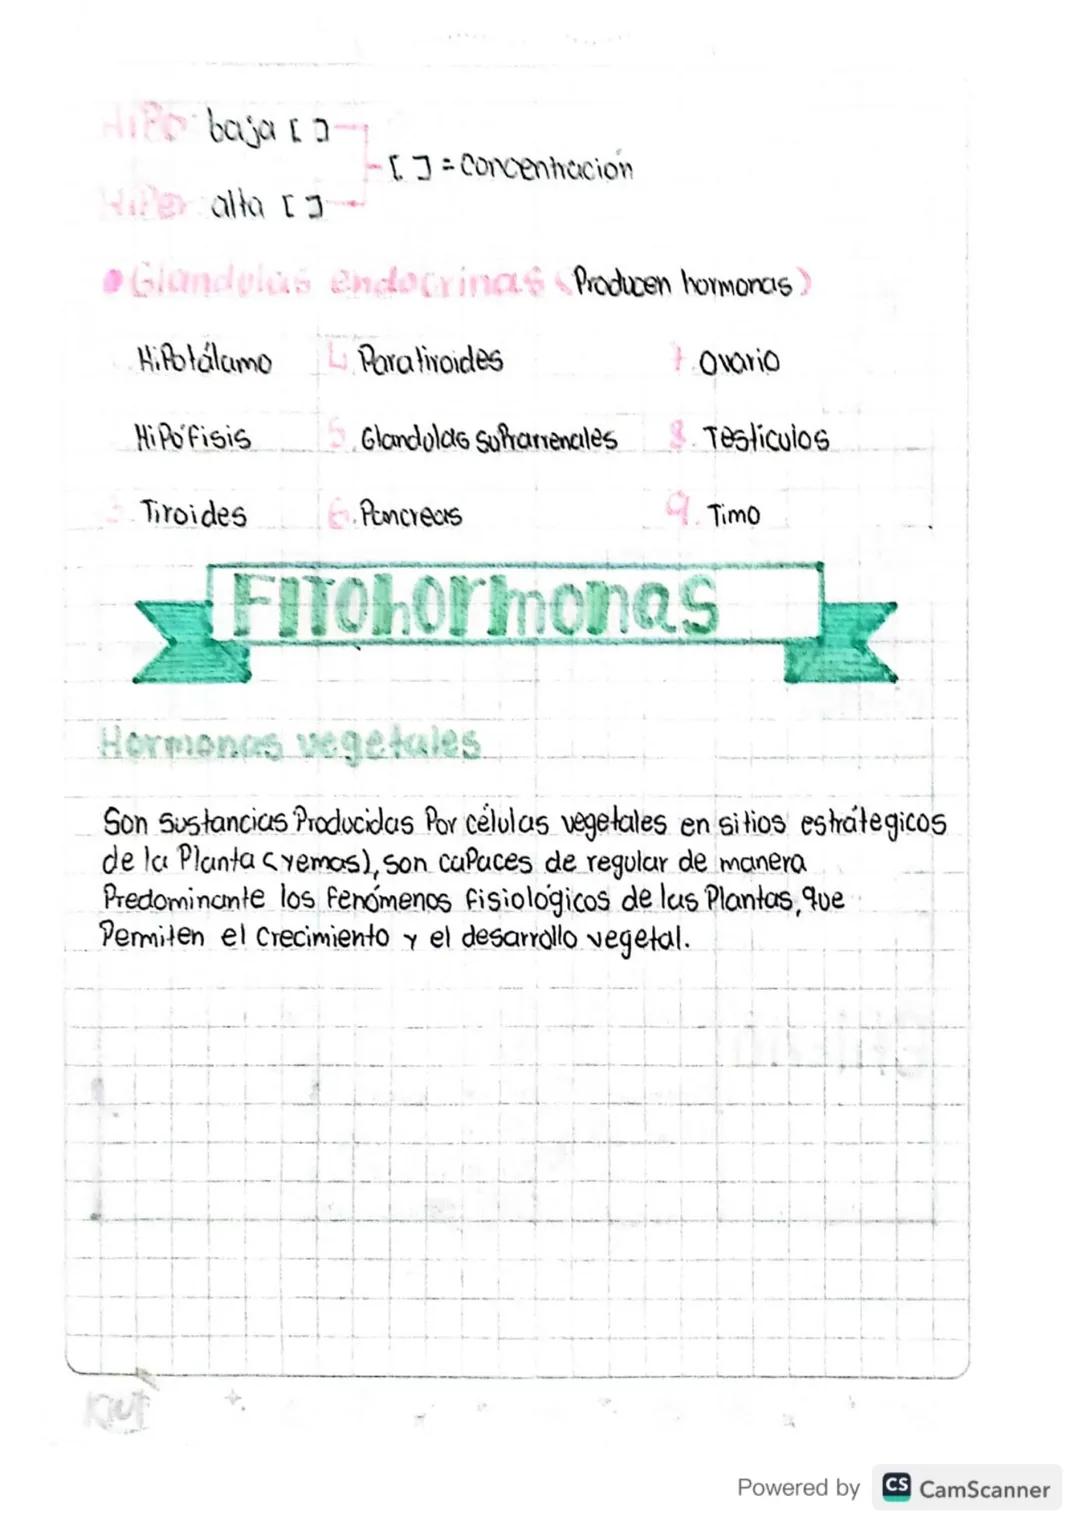 Hipo: baja [ ]
[ ] = Concentración
Hiper: alta [ ]
Glandulas endocrinas (Producen hormonas)
Hipotálamo 4. Paratiroides 7. Ovario
Hipófisis 5. Glandulas suprarrenales 8. Testiculos
3. Tiroides 6. Pancreas 9. Timo
Fitohormonas
Hormonas vegetales
Son sustancias Producidas Por células vegetales en sitios estrátegicos
de la Planta (yemas), son capaces de regular de manera
Predominante los fenómenos fisiológicos de las Plantas, que
Permiten el crecimiento y el desarrollo vegetal.
Kiut
Powered by CS CamScanner